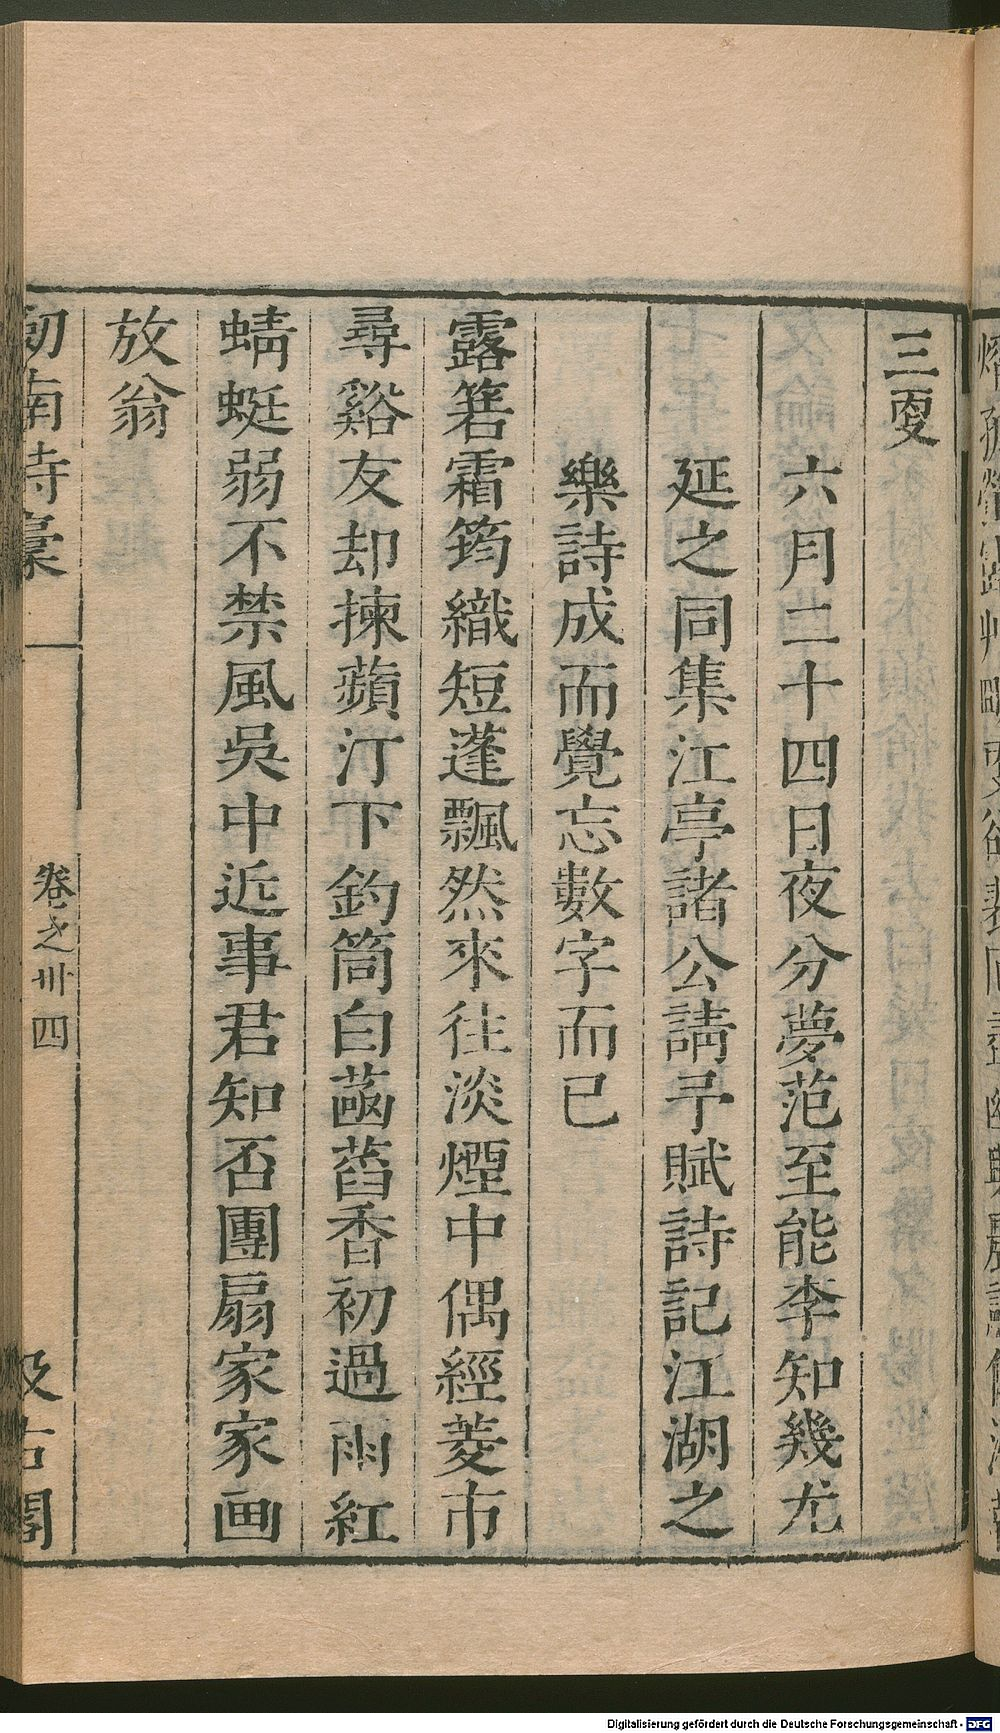 三叟
六月二十四日夜分夢范至能李知幾尤
延之同集江亭諸公請予賦詩記江湖之
樂詩成而覺忘數字而已
露箬霜筠織短蓬飄然來往淡煙中偶經菱市
尋谿友却揀蘋汀下釣筒白菡萏香初過雨紅
蜻蜓弱不禁風吳中近事君知否團扇家家画
放翁
劎南詩稾
卷之卅四
汲古閣
Digitalisierung gefördert durch die Deutsche Forschungsgemeinschaft - DFG